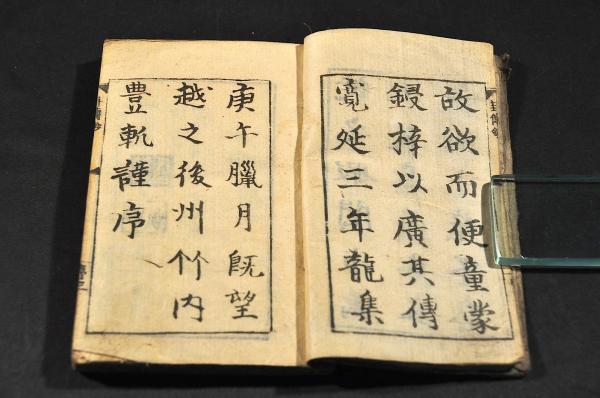 故欲而便童蒙
鋟梓以廣其傳
寛延三年龍集
庚午臘月既望
越之後州竹内
豊軏謹序